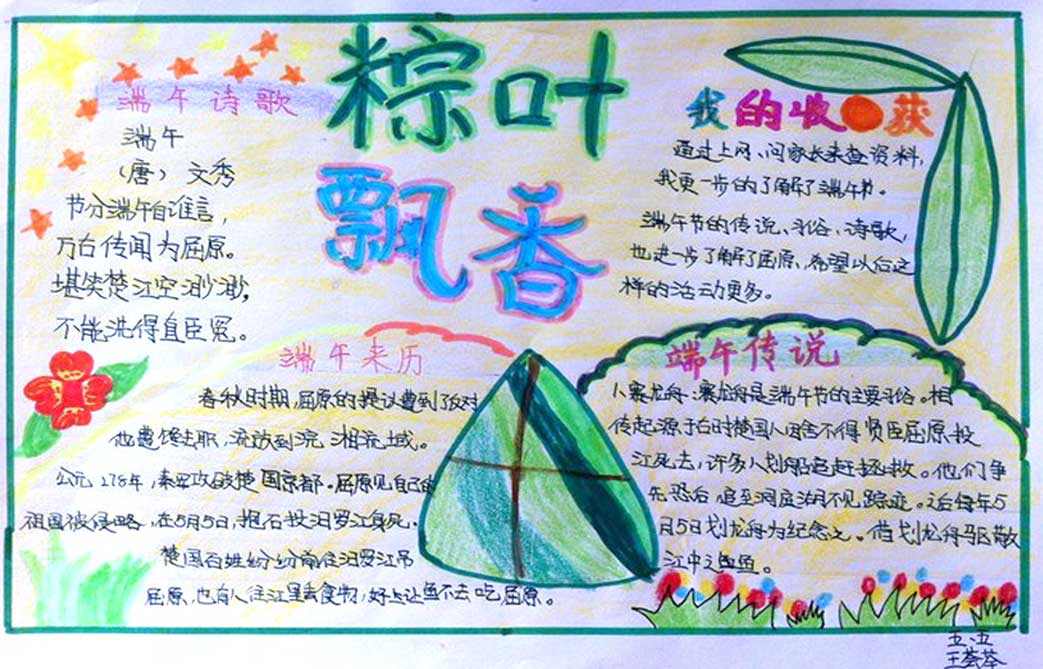 粽叶
飘香
端午诗歌
端午
(唐) 文秀
节分端午自谁言,
万古传闻为屈原。
堪笑楚江空渺渺,
不能洗得直臣冤。
我的收获
通过上网、问家长来查资料,
我更一步的了解了端午节。
端午节的传说、习俗、诗歌,
也进一步了解了屈原、希望以后这
样的活动更多。
端午来历
春秋时期,屈原的提议遭到了反对
他遭馋去职,流放到沅、湘流域。
公元278年,秦军攻破楚国京都。屈原见自己的
祖国被侵略,在5月5日,抱石投汨罗江身死,
楚国百姓纷纷前往汨罗江吊
屈原,也有人往江里丢食物,好上让鱼不去吃屈原。
端午传说
1、赛龙舟:赛龙舟是端午节的主要习俗。相
传起源于古时楚国人因舍不得贤臣屈原投
江死去,许多人划船追赶拯救。他们争
先恐后,追至洞庭湖不见踪迹。之后每年5
月5日划龙舟为纪念之。借划龙舟驱散
江中之鱼。
五.五
王荟苓